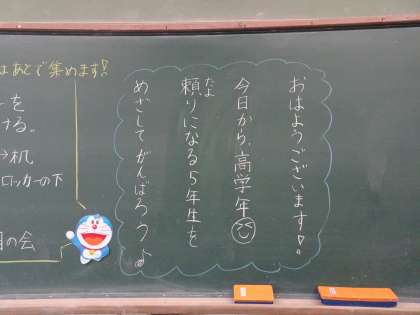 おはようございます!
今日から、高学年
頼りになる5年生を
たよ
めざしてがんばろう♪
はあとで集めます!
ーを
ける。
→机
ロッカーの下
の会